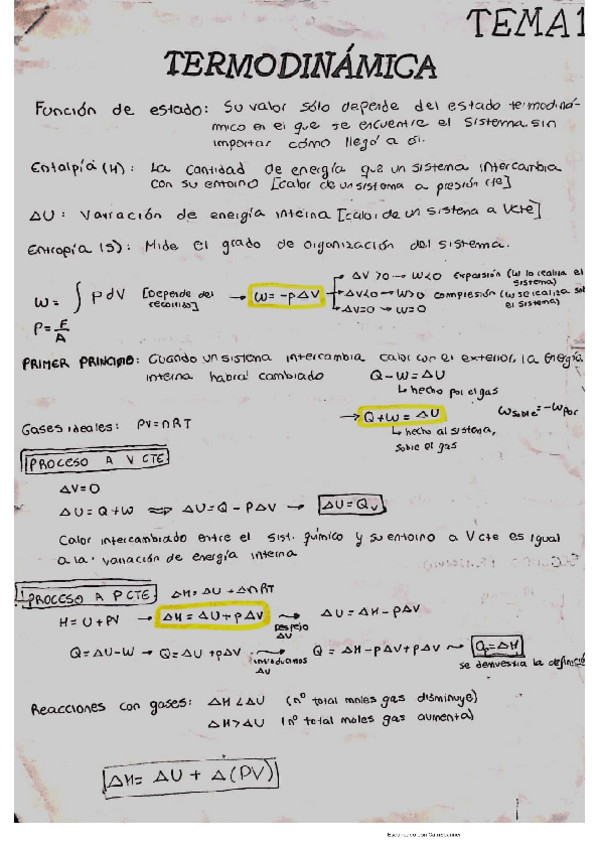 TEMA 1
TERMODINÁMICA
Función de estado: Su valor sólo depende del estado termodiná-
mico en el que se encuentre el sistema sin
importar cómo llegó a él.
Entalpía (H): La cantidad de energía que un sistema intercambia
con su entorno [calor de un sistema a presión cte]
ΔU: Variación de energía interna [calor de un sistema a Vcte]
Entropía (S): Mide el grado de organización del sistema.
W = ∫ P dV [Depende del recorrido] → W = -pΔV
ΔV>0 → W<0 expansión (W lo realiza el sistema)
ΔV<0 → W>0 compresión (W se realiza sobre el sistema)
ΔV=0 → W=0
P = F/A
PRIMER PRINCIPIO: Cuando un sistema intercambia calor con el exterior, la energía
interna habrá cambiado Q-W=ΔU
↳ hecho por el gas
Gases ideales: PV=nRT → Q+W=ΔU Wsobre=-Wpor
↳ hecho al sistema,
sobre el gas
PROCESO A V CTE
ΔV=0
ΔU=Q+W ⟺ ΔU=Q-PΔV → ΔU=Qv
Calor intercambiado entre el sist. químico y su entorno a Vcte es igual
a la variación de energía interna
PROCESO A P CTE ΔH=ΔU+ΔnRT
H=U+PV → ΔH=ΔU+pΔV → despejo ΔU ΔU=ΔH-pΔV
Q=ΔU-W → Q=ΔU+pΔV → introducimos ΔU Q=ΔH-pΔV+pΔV → Qp=ΔH
se demuestra la definición
Reacciones con gases: ΔH<ΔU (nº total moles gas disminuye)
ΔH>ΔU (nº total moles gas aumenta)
ΔH=ΔU+Δ(PV)
Escaneado con CamScanner